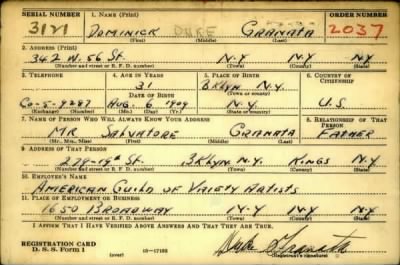 SERIAL NUMBER 1. NAME (Print) ORDER NUMBER
3121 DOMINICK DUKE GRANATA 2037
(First) (Middle) (Last)
2. ADDRESS (Print)
342 W. 56 St. N.Y. N.Y. N.Y
(Number and street or R. F. D. number) (Town) (County) (State)
3. TELEPHONE 4. AGE IN YEARS 5. PLACE OF BIRTH 6. COUNTRY OF CITIZENSHIP
31 BKLYN N.Y.
DATE OF BIRTH (Town or county)
Co-5-9287 AUG. 6 1909 N.Y. U.S.
(Exchange) (Number) (Mo.) (Day) (Yr.) (State or country)
7. NAME OF PERSON WHO WILL ALWAYS KNOW YOUR ADDRESS 8. RELATIONSHIP OF THAT PERSON
MR SALVATORE GRANATA FATHER
(Mr., Mrs., Miss) (First) (Middle) (Last)
9. ADDRESS OF THAT PERSON
279-19th St. BKLYN. N.Y. KINGS N.Y
(Number and street or R. F. D. number) (Town) (County) (State)
10. EMPLOYER'S NAME
AMERICAN GUILD OF VARIETY ARTISTS
11. PLACE OF EMPLOYMENT OR BUSINESS
1650 BROADWAY N.Y N.Y N.Y
(Number and street or R. F. D. number) (Town) (County) (State)
I AFFIRM THAT I HAVE VERIFIED ABOVE ANSWERS AND THAT THEY ARE TRUE.
REGISTRATION CARD
D. S. S. Form 1 16-17105 Duke Granata
(Registrant's signature)